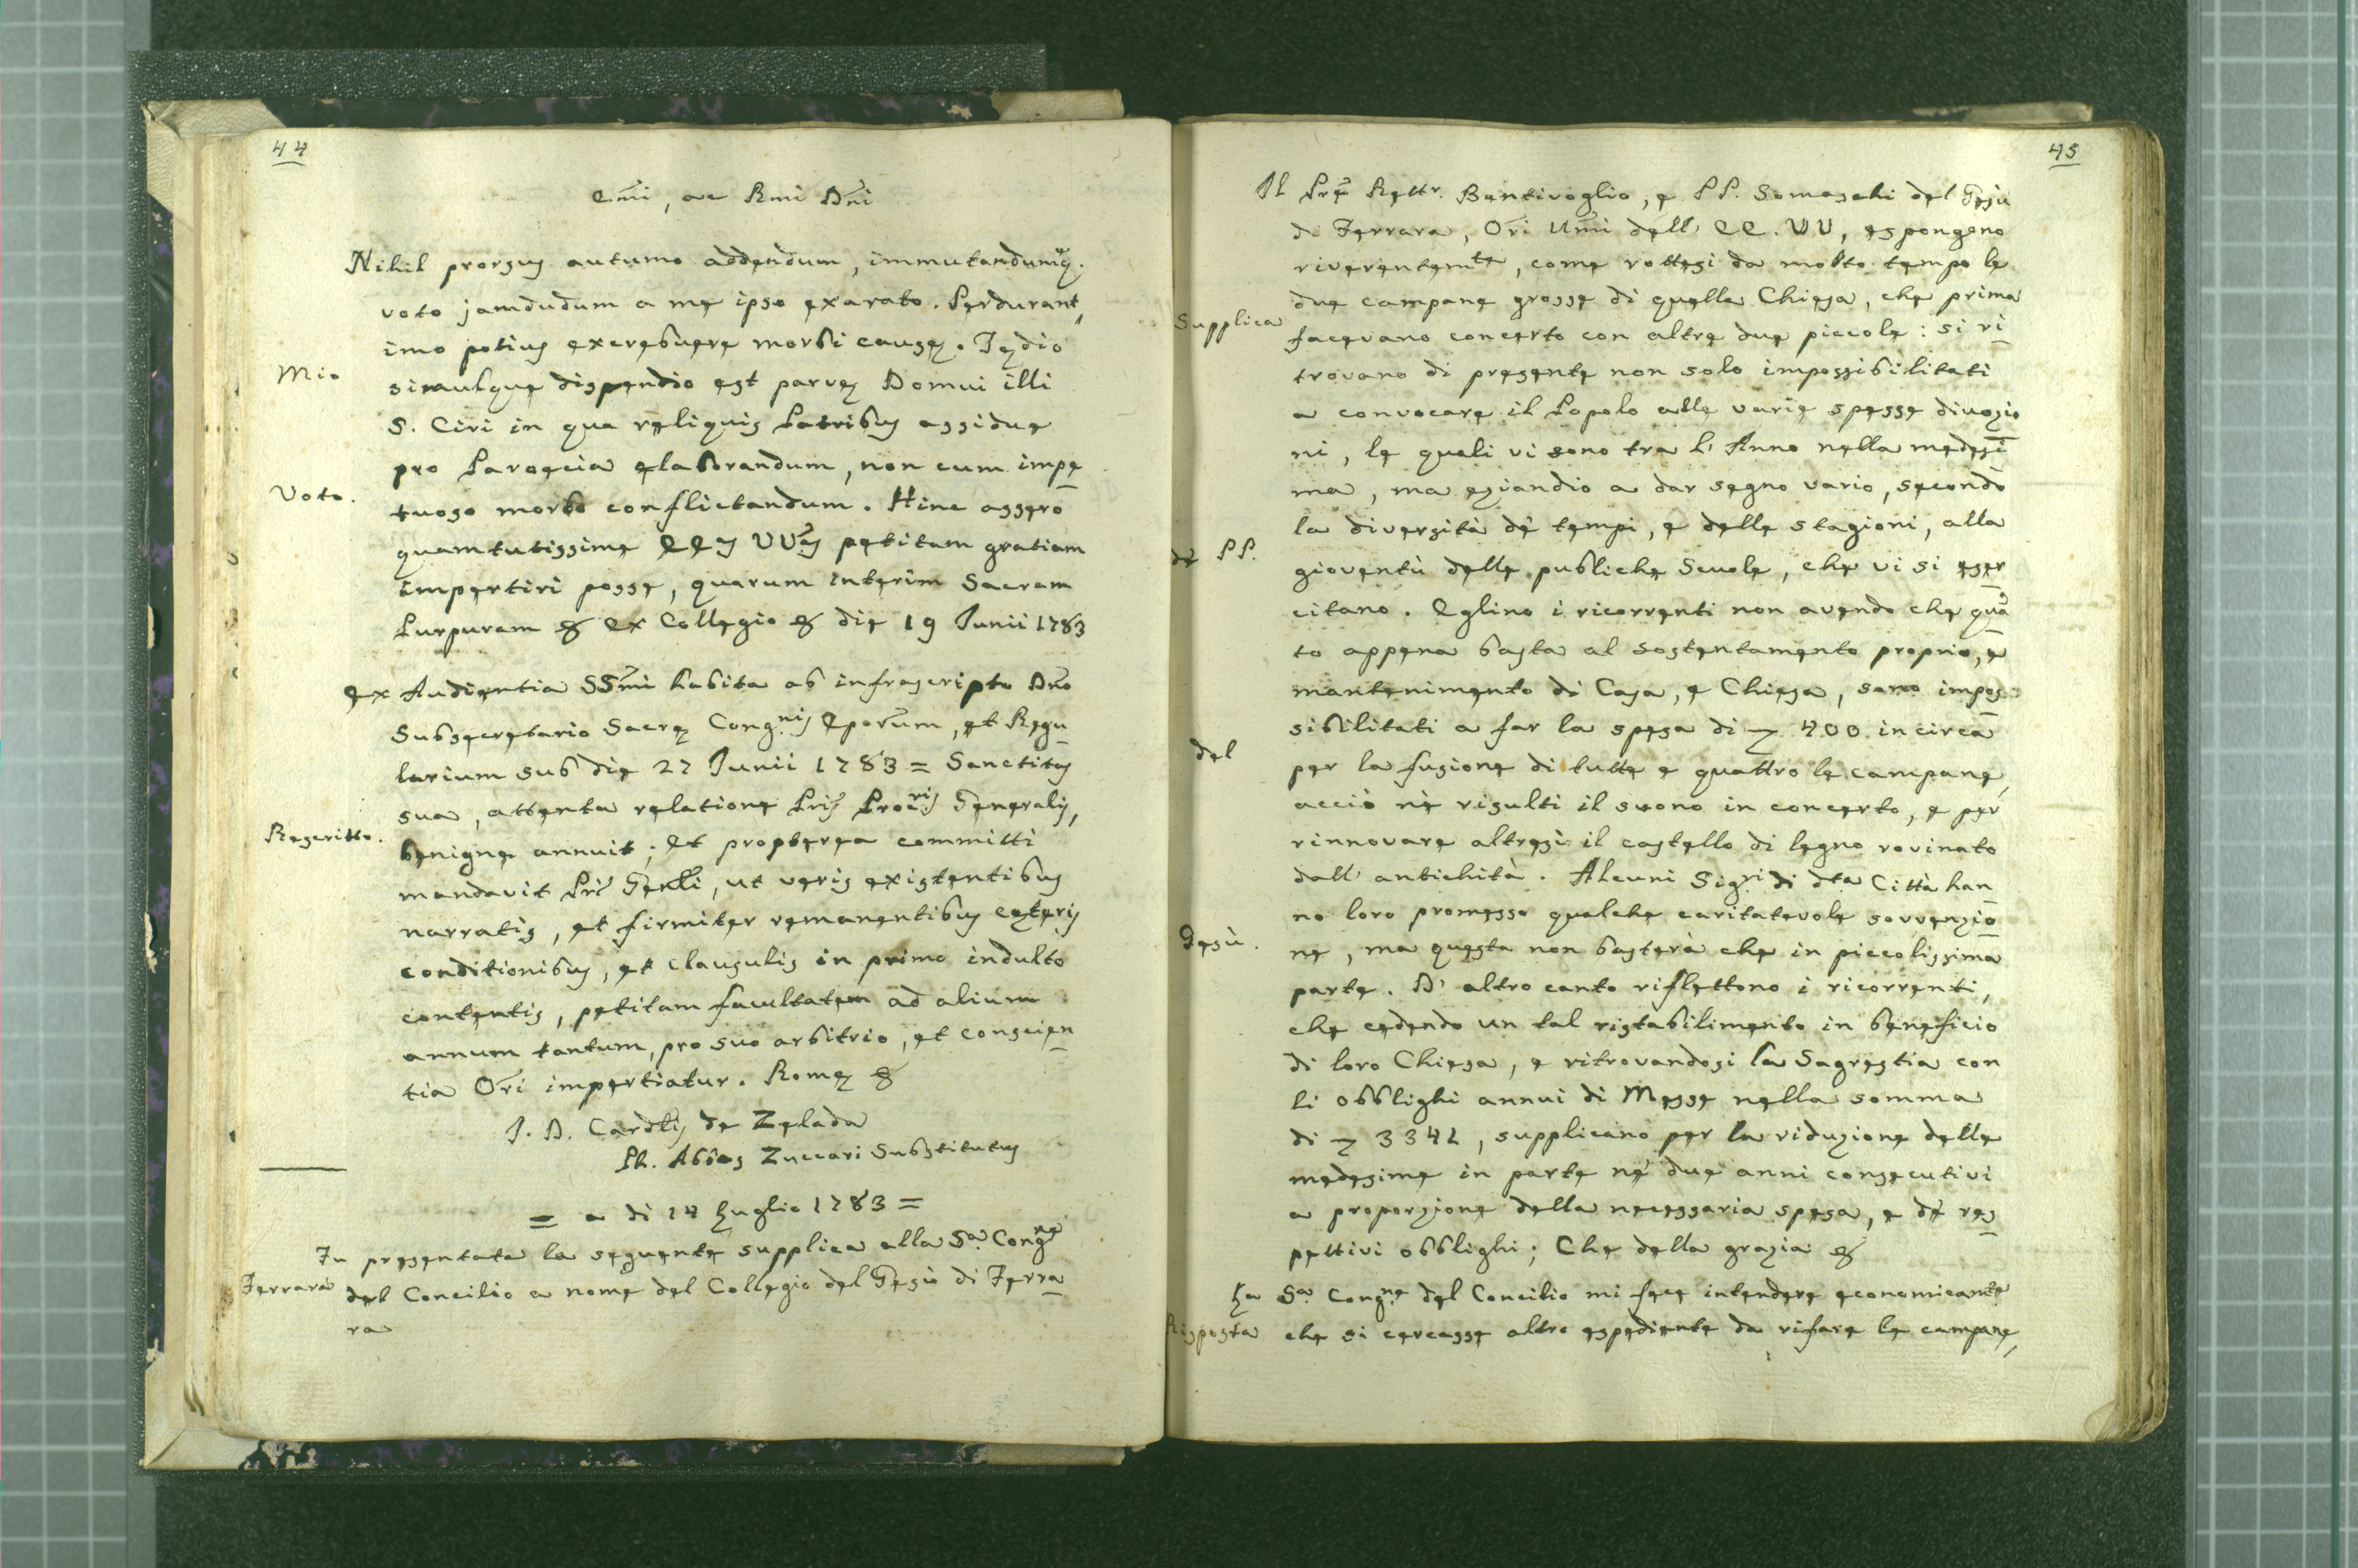 44
Emi, ac Rmi Dni
Nihil prorsus autumo addendum, immutandumq.
voto jamdudum a me ipso exarato. Perdurant,
imo potius excrebuere morbi causę. Tędio
Mio
simulque dispendio est parvę Domui illi
S. Ciri in qua reliquis Patribus assidue
pro Paroecia elaborandum, non cum impe
Voto.
tuoso morbo conflictandum. Hinc assero
quamtutissime EEas VVas petitam gratiam
impertiri posse, quarum interim Sacram
Purpuram & Ex Collegio & die 19 Junii 1783
Ex Audientia SSmi habita ab infrascripto Dno
Subsecretario Sacrę Congnis Eporum, et Regu
larium sub die 27 Junii 1783 = Sanctitas
sua, attenta relatione Pris Procris Generalis,
Rescritto.
benigne annuit; et propterea committi
mandavit Pri Genli, ut veris existentibus
narratis, et firmiter remanentibus cęteris
conditionibus, et clausulis in primo indulto
contentis, petitam facultatem ad alium
annum tantum, pro suo arbitrio, et conscien
tia Ori impertiatur. Romę &
Cardlis de Zelada
Ph. Abbas Zuccari Substitutus
= a di 14 Luglio 1783 =
Fu presentata la seguente supplica alla Sa Congne
Ferrara
del Concilio a nome del Collegio del Gesù di Ferra
ra
45
Il Pre Rettr. Bentivoglio, e PP. Somaschi del Gesù
di Ferrara, Ori Umi dell' EE. VV, espongono
riverentemte, come rottesi da molto tempo le
due campane grosse di quella Chiesa, che prima
Supplica
facevano concerto con altre due piccole: si ri
trovano di presente non solo impossibilitati
a convocare il Popolo alle varie spesse divozio
ni, le quali vi sono tra l' Anno nella medesi
ma, ma eziandio a dar segno vario, secondo
la diversità de' tempi, e delle stagioni, alla
de' PP.
gioventù delle publiche Scuole, che vi si eser
citano. Eglino i ricorrenti non avendo che qua
to appena basta al sostentamento proprio, e
mantenimento di Casa, e Chiesa, sono impos
sibilitati a far la spesa di 400 in circa
del
per la fusione di tutte e quattro le campane,
acciò nè risulti il suono in concerto, e per
rinnovare altresì il castello di legno rovinato
dall' antichità. Alcuni Sigri di dta Città han
no loro promesso qualche caritatevole sovvenzio
Gesù.
ne, ma questa non basterà che in piccolissima
parte. D' altro canto riflettono i ricorrenti,
che cedendo un tal ristabilimento in beneficio
di loro Chiesa, e ritrovandosi la Sagrestia con
li obblighi annui di Messe nella somma
di 3342, supplicano per la riduzione delle
medesime in parte ne' due anni consecutivi
a proporzione della necessaria spesa, e de' res
pettivi obblighi; Che della grazia &
La Sa Congne del Concilio mi fece intendere economicamte
Risposta
che si cercasse altro espediente da rifare le campane,